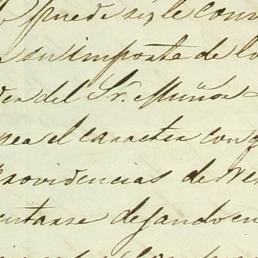 puede si le conv
su importe de lo
del Sr. Muñoz
sea el caracter con q
Providencias de
entarse dejando en